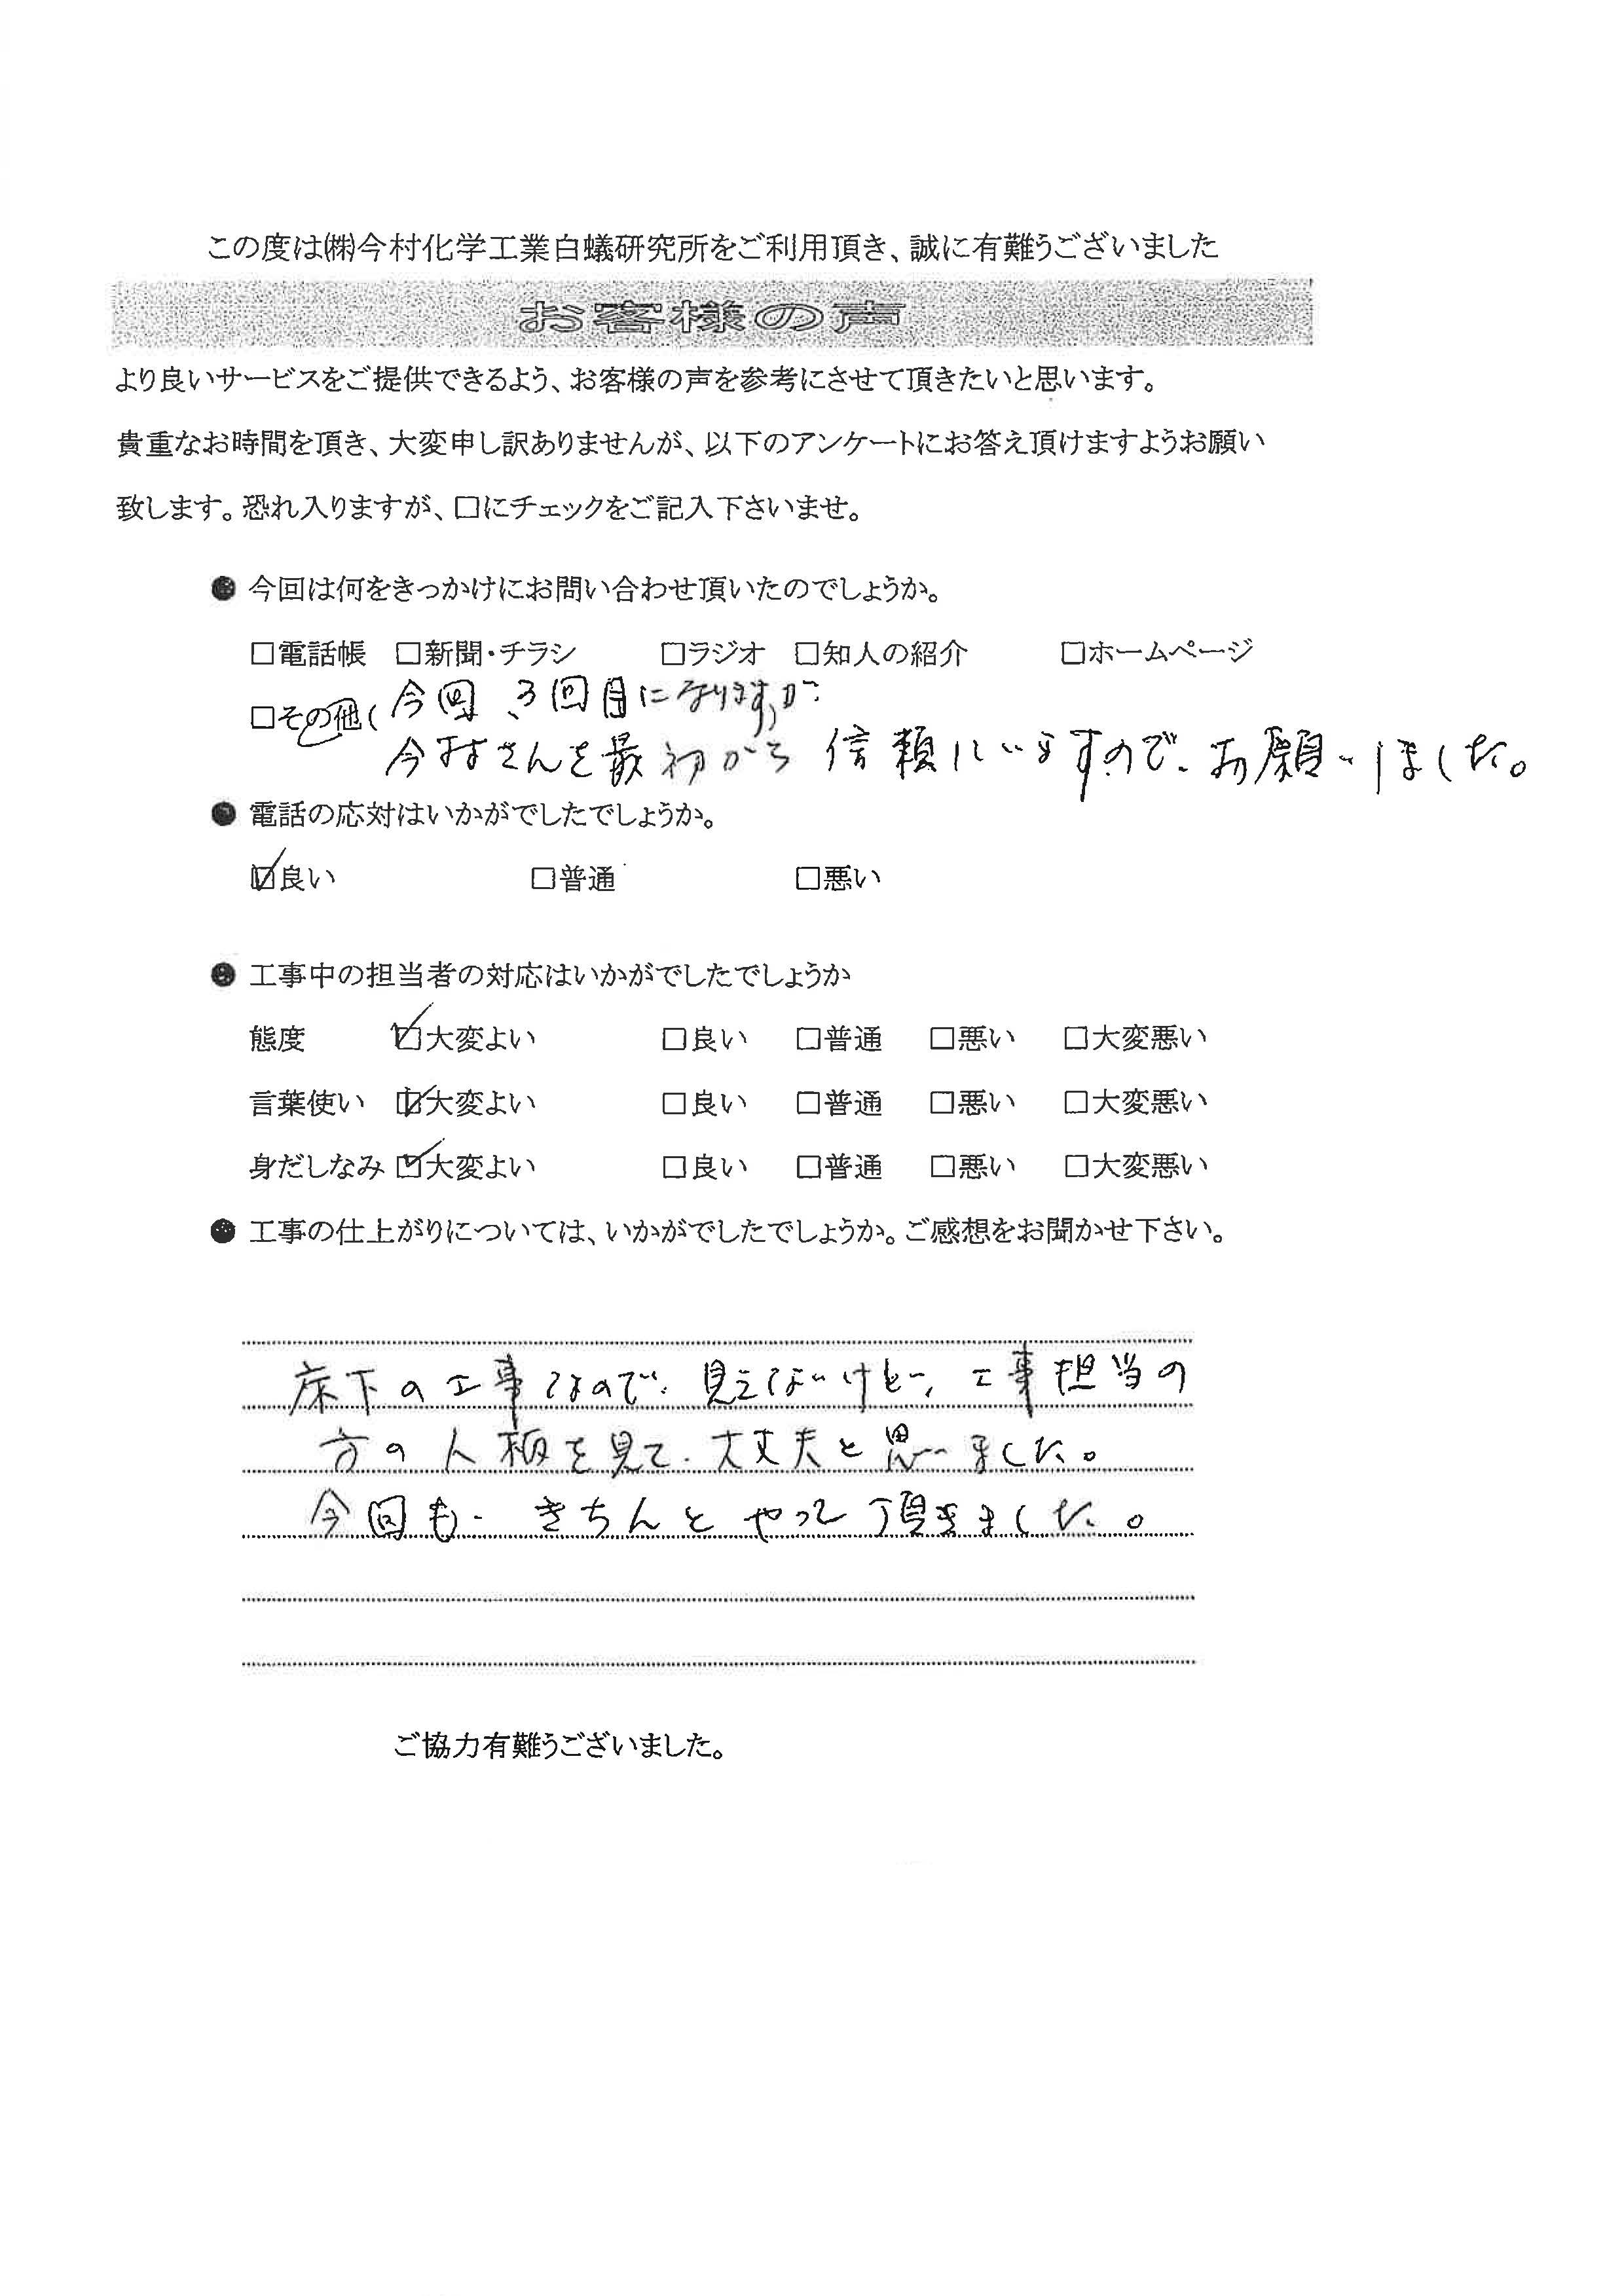 この度は㈱今村化学工業白蟻研究所をご利用頂き、誠に有難うございました
お客様の声
より良いサービスをご提供できるよう、お客様の声を参考にさせて頂きたいと思います。
貴重なお時間を頂き、大変申し訳ありませんが、以下のアンケートにお答え頂けますようお願い
致します。恐れ入りますが、□にチェックをご記入下さいませ。
● 今回は何をきっかけにお問い合わせ頂いたのでしょうか。
□電話帳 □新聞・チラシ □ラジオ □知人の紹介 □ホームページ
□その他( 今回、3回目になりますが
今村さんを最初から信頼していますので、お願いしました。
● 電話の応対はいかがでしたでしょうか。
☑良い □普通 □悪い
● 工事中の担当者の対応はいかがでしたでしょうか
態度 ☑大変よい □良い □普通 □悪い □大変悪い
言葉使い ☑大変よい □良い □普通 □悪い □大変悪い
身だしなみ ☑大変よい □良い □普通 □悪い □大変悪い
● 工事の仕上がりについては、いかがでしたでしょうか。ご感想をお聞かせ下さい。
床下の工事なので、見えないけど、工事担当の
方の人柄を見て、大丈夫と思いました。
今回も、きちんとやって頂きました。
ご協力有難うございました。